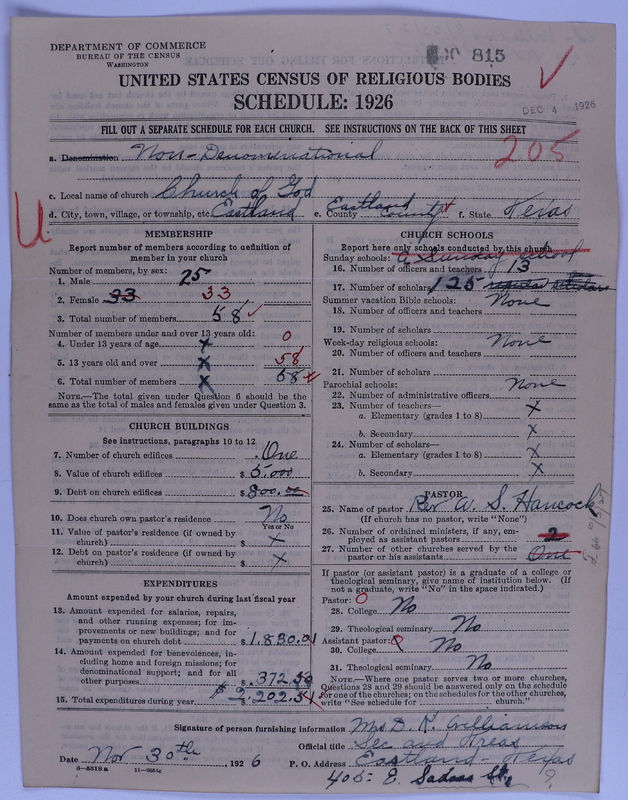 DEPARTMENT OF COMMERCE
BUREAU OF THE CENSUS
WASHINGTON
815
UNITED STATES CENSUS OF RELIGIOUS BODIES
SCHEDULE: 1926
DEC 4 1926
FILL OUT A SEPARATE SCHEDULE FOR EACH CHURCH. SEE INSTRUCTIONS ON THE BACK OF THIS SHEET
205
a. Denomination Non-Denominational
c. Local name of church Church of God
d. City, town, village, or township, etc Eastland e. County Eastland County f. State Texas
MEMBERSHIP
Report number of members according to definition of
member in your church
Number of members, by sex:
1. Male 25
2. Female 33 33
3. Total number of members 58
Number of members under and over 13 years old:
4. Under 13 years of age x 0
5. 13 years old and over x 58
6. Total number of members x 58
NOTE.—The total given under Question 6 should be
the same as the total of males and females given under Question 3.
CHURCH BUILDINGS
See instructions, paragraphs 10 to 12
7. Number of church edifices One
8. Value of church edifices $5,000
9. Debt on church edifices $800.00
10. Does church own pastor's residence No
Yes or No
11. Value of pastor's residence (if owned by
church) $ x
12. Debt on pastor's residence (if owned by
church) $ x
EXPENDITURES
Amount expended by your church during last fiscal year
13. Amount expended for salaries, repairs,
and other running expenses; for im-
provements or new buildings; and for
payments on church debt $1,830.01
14. Amount expended for benevolences, in-
cluding home and foreign missions; for
denominational support; and for all
other purposes $372.50
15. Total expenditures during year $2,202.51
CHURCH SCHOOLS
Report here only schools conducted by this church
Sunday schools: a Sunday school
16. Number of officers and teachers 13
17. Number of scholars 125 regular
Summer vacation Bible schools: None
18. Number of officers and teachers
19. Number of scholars
Week-day religious schools: None
20. Number of officers and teachers
21. Number of scholars
Parochial schools: None
22. Number of administrative officers
23. Number of teachers—
a. Elementary (grades 1 to 8) x
b. Secondary x
24. Number of scholars—
a. Elementary (grades 1 to 8) x
b. Secondary x
PASTOR
25. Name of pastor Rev W. S. Hancock
(If church has no pastor, write "None")
26. Number of ordained ministers, if any, em-
ployed as assistant pastors 2
27. Number of other churches served by the
pastor or his assistants One
If pastor (or assistant pastor) is a graduate of a college or
theological seminary, give name of institution below. (If
not a graduate, write "No" in the space indicated.)
Pastor: 0
28. College No
29. Theological seminary No
Assistant pastor:
30. College No
31. Theological seminary No
NOTE.—Where one pastor serves two or more churches,
Questions 28 and 29 should be answered only on the schedule
for one of the churches; on the schedules for the other churches,
write "See schedule for church."
Signature of person furnishing information Mrs D. K. Williamson
Official title Sec and Treas
Date Nov 30th, 1926 P. O. Address Eastland - Texas
8—5518 a 11—9664c
405- E. Sadosa St, ?